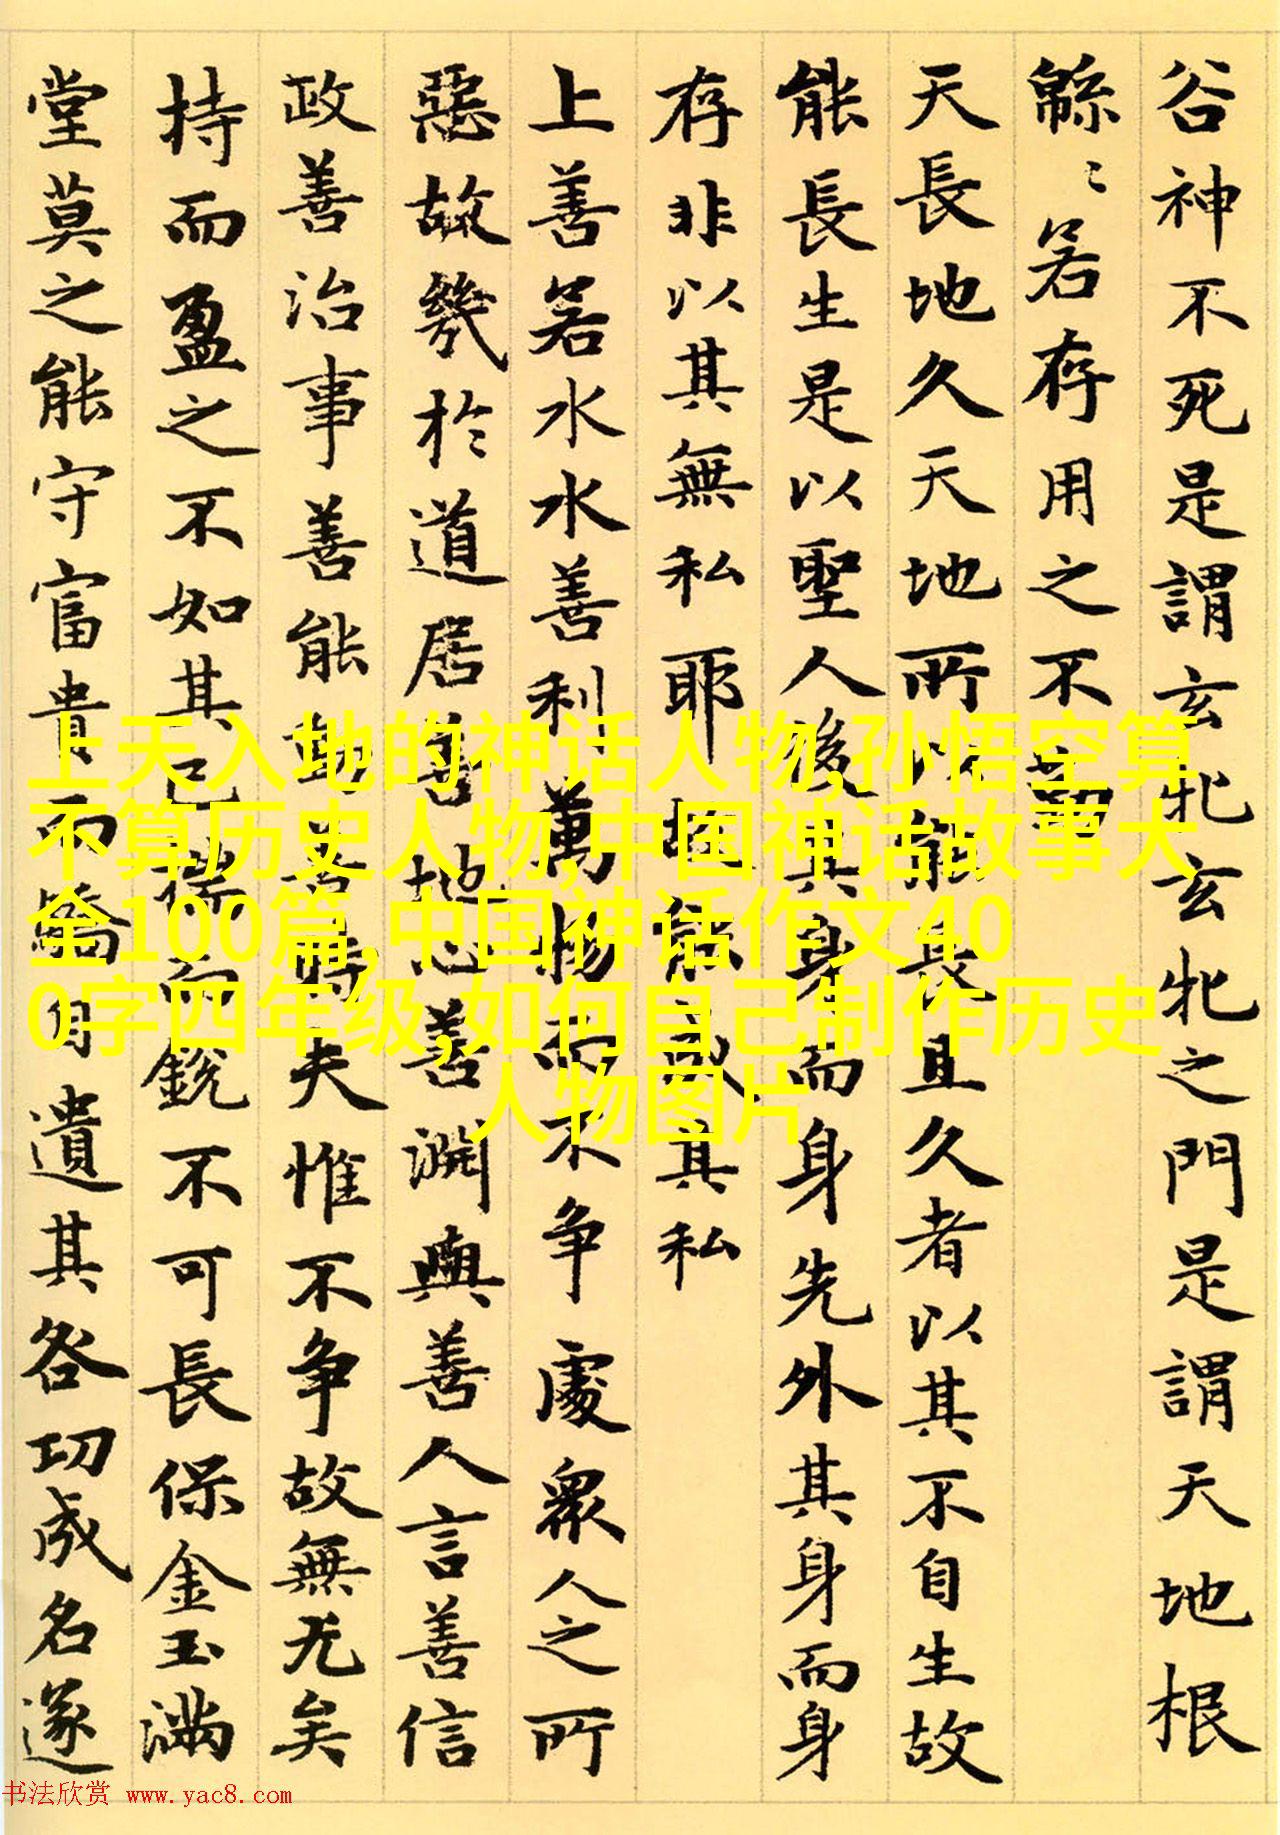 谷神不死是謂玄牝玄牝之門是謂天地根
緜〻若存用之不勤
天長地久天地所以能長且久者以其不自生故
能長生是以聖人後其身而身先外其身而身
存非以其無私耶故能成其私
上善若水水善利萬物而不争處衆人之所
惡故幾於道居善地心善淵與善人言善信
政善治事善能動善時夫惟不争故無尤矣
持而盈之不如其已揣而銳不可長保金玉滿
堂莫之能守富貴而驕自遺其咎功成名遂
上天入地的神话人物,孙悟空算
不算历史人物,中国神话故事大
全100篇,中国神话作文40
0字四年级,如何自己制作历史
人物图片
书法欣赏 www.yac8.com